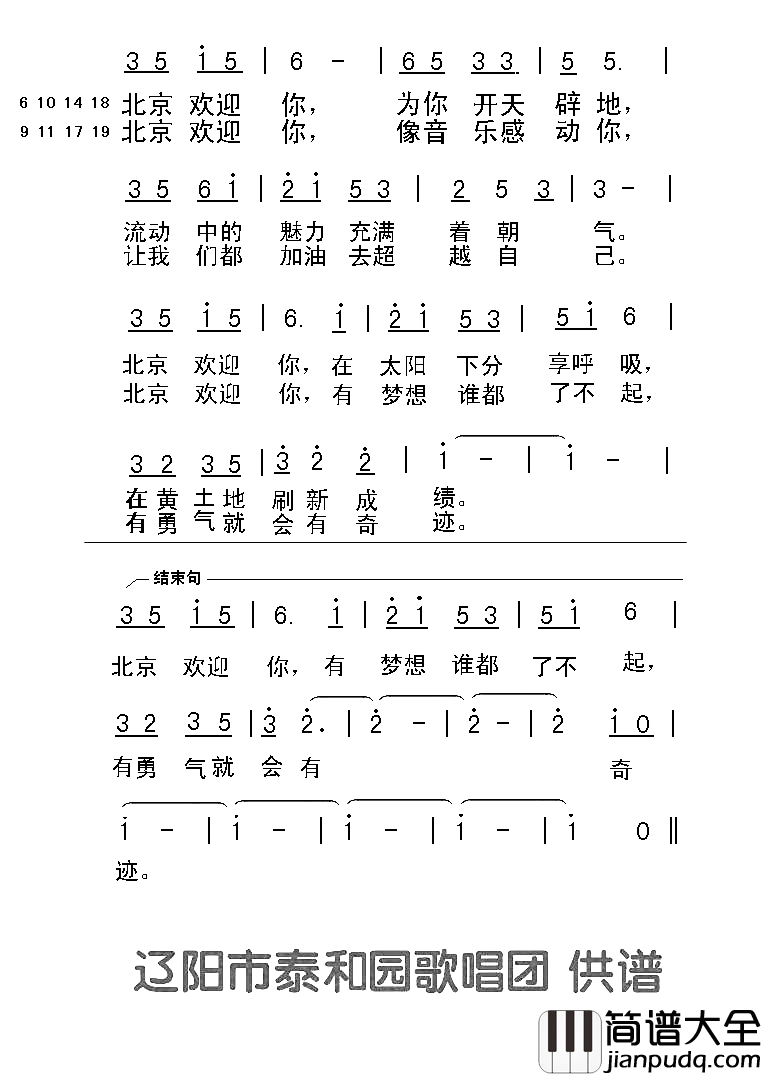 3 5 i 5 | 6 - | 6 5 3 3 | 5 5. |
6 10 14 18 北京 欢迎 你， 为你 开天 辟 地，
9 11 17 19 北京 欢迎 你， 像音 乐感 动 你，
3 5 6 i | 2 i 5 3 | 2 5 3 | 3 - |
流动 中的 魅力 充满 着 朝 气。
让我 们都 加油 去超 越 自 己。
3 5 i 5 | 6. i | 2 i 5 3 | 5 i 6 |
北京 欢迎 你，在 太阳 下分 享呼 吸，
北京 欢迎 你，有 梦想 谁都 了不 起，
3 2 3 5 | 3 2 2 | i - | i - |
在黄 土地 刷 新 成 绩。
有勇 气就 会 有 奇 迹。
结束句
3 5 i 5 | 6. i | 2 i 5 3 | 5 i 6 |
北京 欢迎 你，有 梦想 谁都 了不 起，
3 2 3 5 | 3 2. | 2 - | 2 - | 2 i 0 |
有勇 气就 会 有 奇
i - | i - | i - | i - | i 0 ‖
迹。
辽阳市泰和园歌唱团 供谱
简谱大全
jianpudq.com